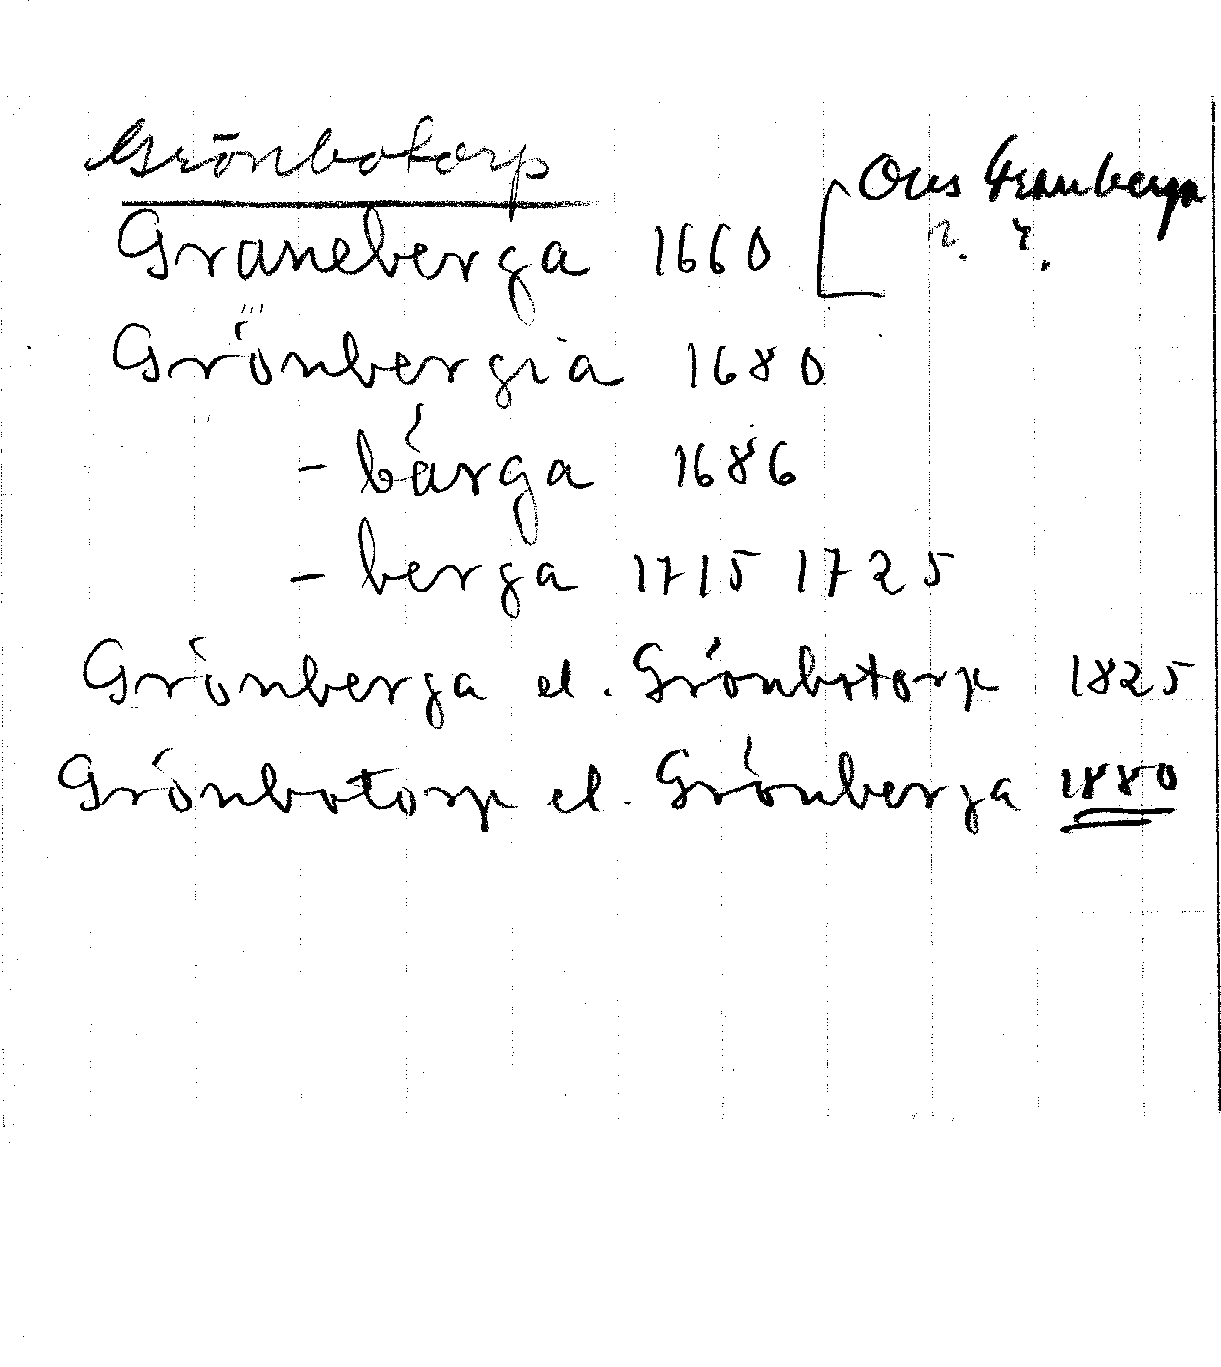 Grönbotorp
Graneberga 1660
Grönbergia 1680
- bärga 1686
- berga 1715 1725
Grönberga el. Grönbotorp 1825
Grönbotorp el. Grönberga 1880